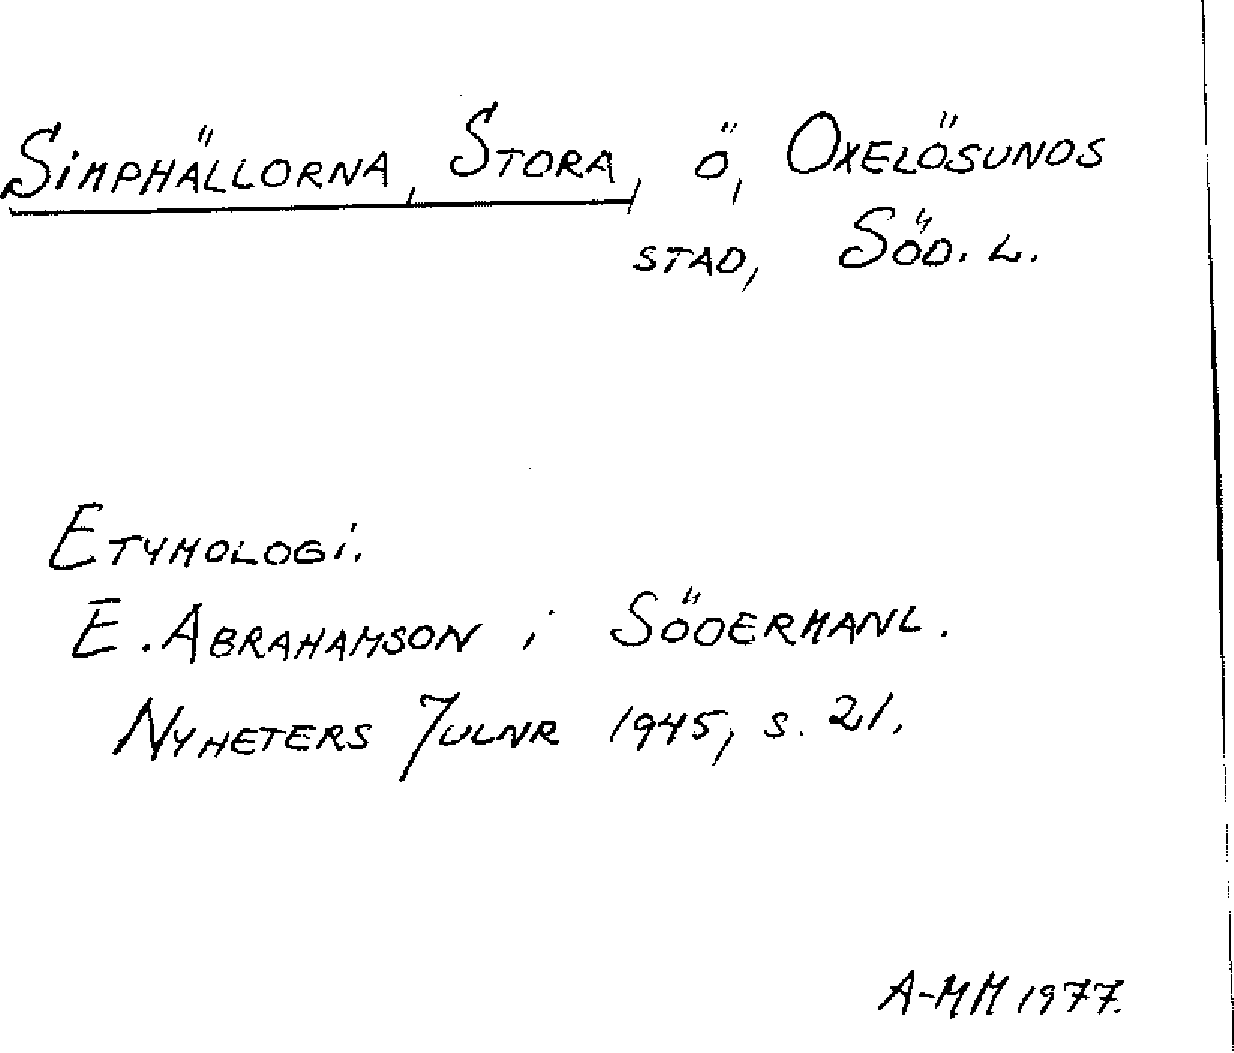 SIMPHÄLLORNA, STORA, Ö, OXELÖSUNDS
STAD, SÖD. L.
ETYMOLOGI.
E. ABRAHAMSON i SÖDERMANL.
NYHETERS JULNR 1945, S. 21.
A-MM 1977.